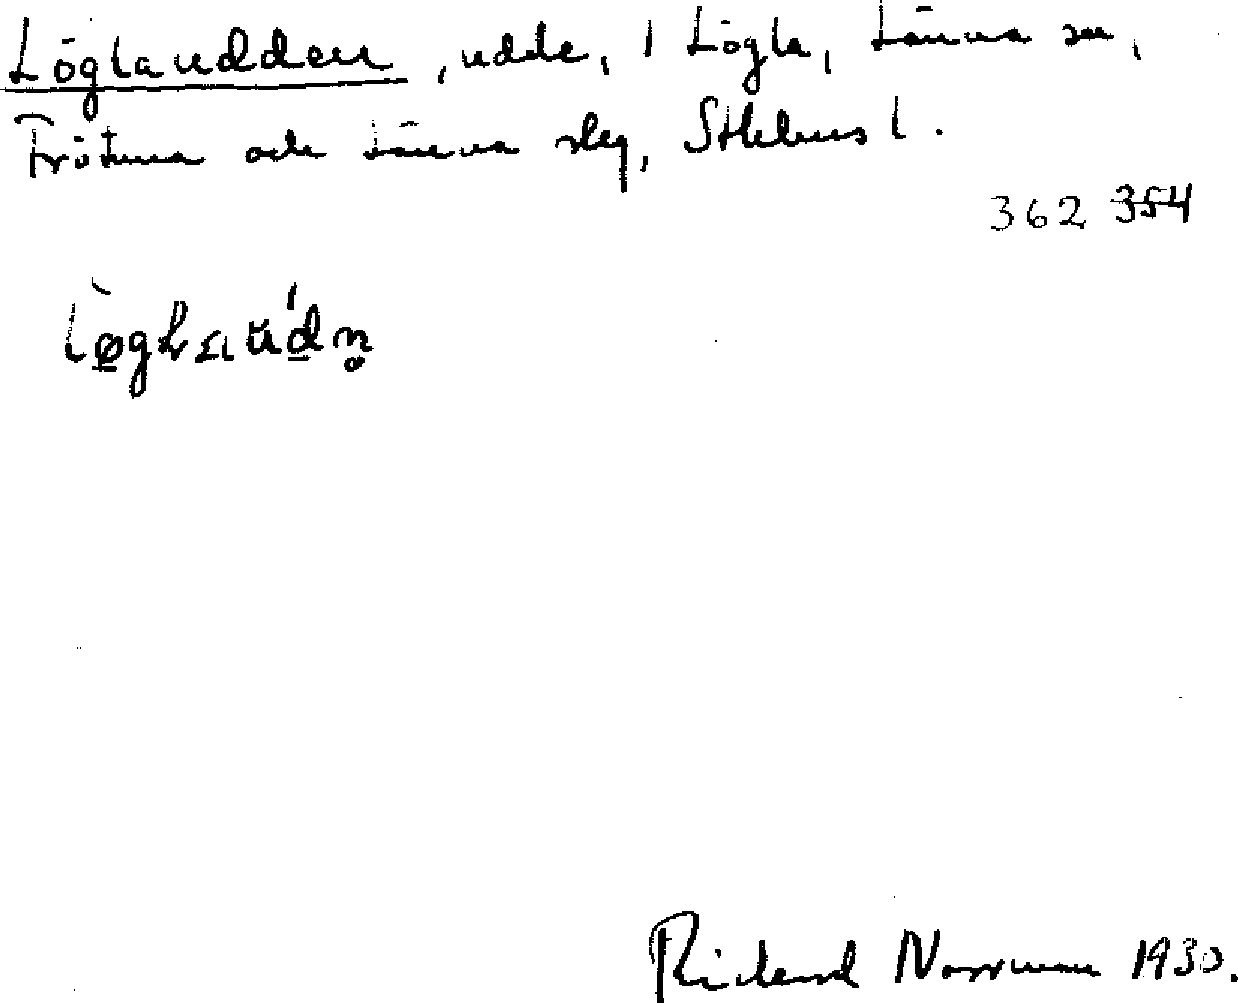 Löglaudden, udde, i Lögla, Länna sn,
Frötuna och Länna slg, Sthlms l.
362 354
Rickard Norrman 1930.